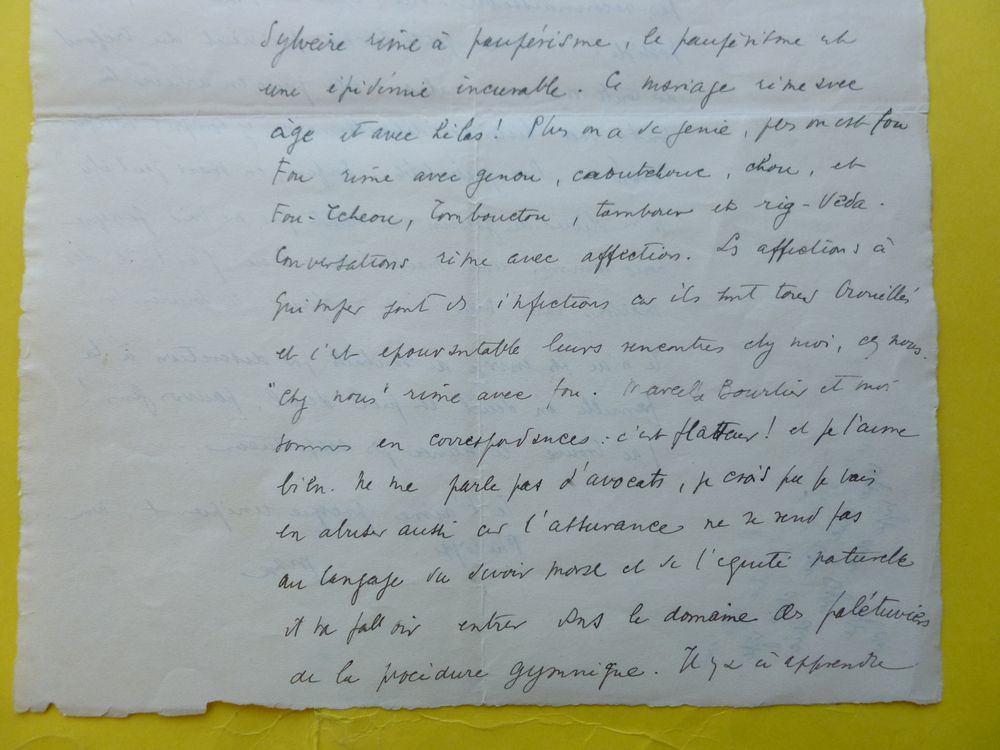 Sylveire rime à paupérisme, le paupérisme est
une épidémie incurable. Ce mariage rime avec
âge et avec hélas! Plus on a de génie, plus on est fou
Fou rime avec genou, caoutchouc, chou, et
Fou-Tcheou, Tombouctou, tambour et rig-Véda.
Conversations rime avec affection. Les affections à
Quimper sont des infections car ils sont tous brouillés
et c'est epouvantable leurs rencontres chez moi, chez nous.
"chez nous" rime avec fou. Marcelle Bourlier et moi
sommes en correspondances: c'est flatteur! et je l'aime
bien. Ne me parle pas d'avocats, je crois que je vais
en abuser aussi car l'assurance ne se rend pas
au langage du devoir moral et de l'équité naturelle
il va falloir entrer dans le domaine des palétuviers
de la procédure gymnique. Il y a à apprendre